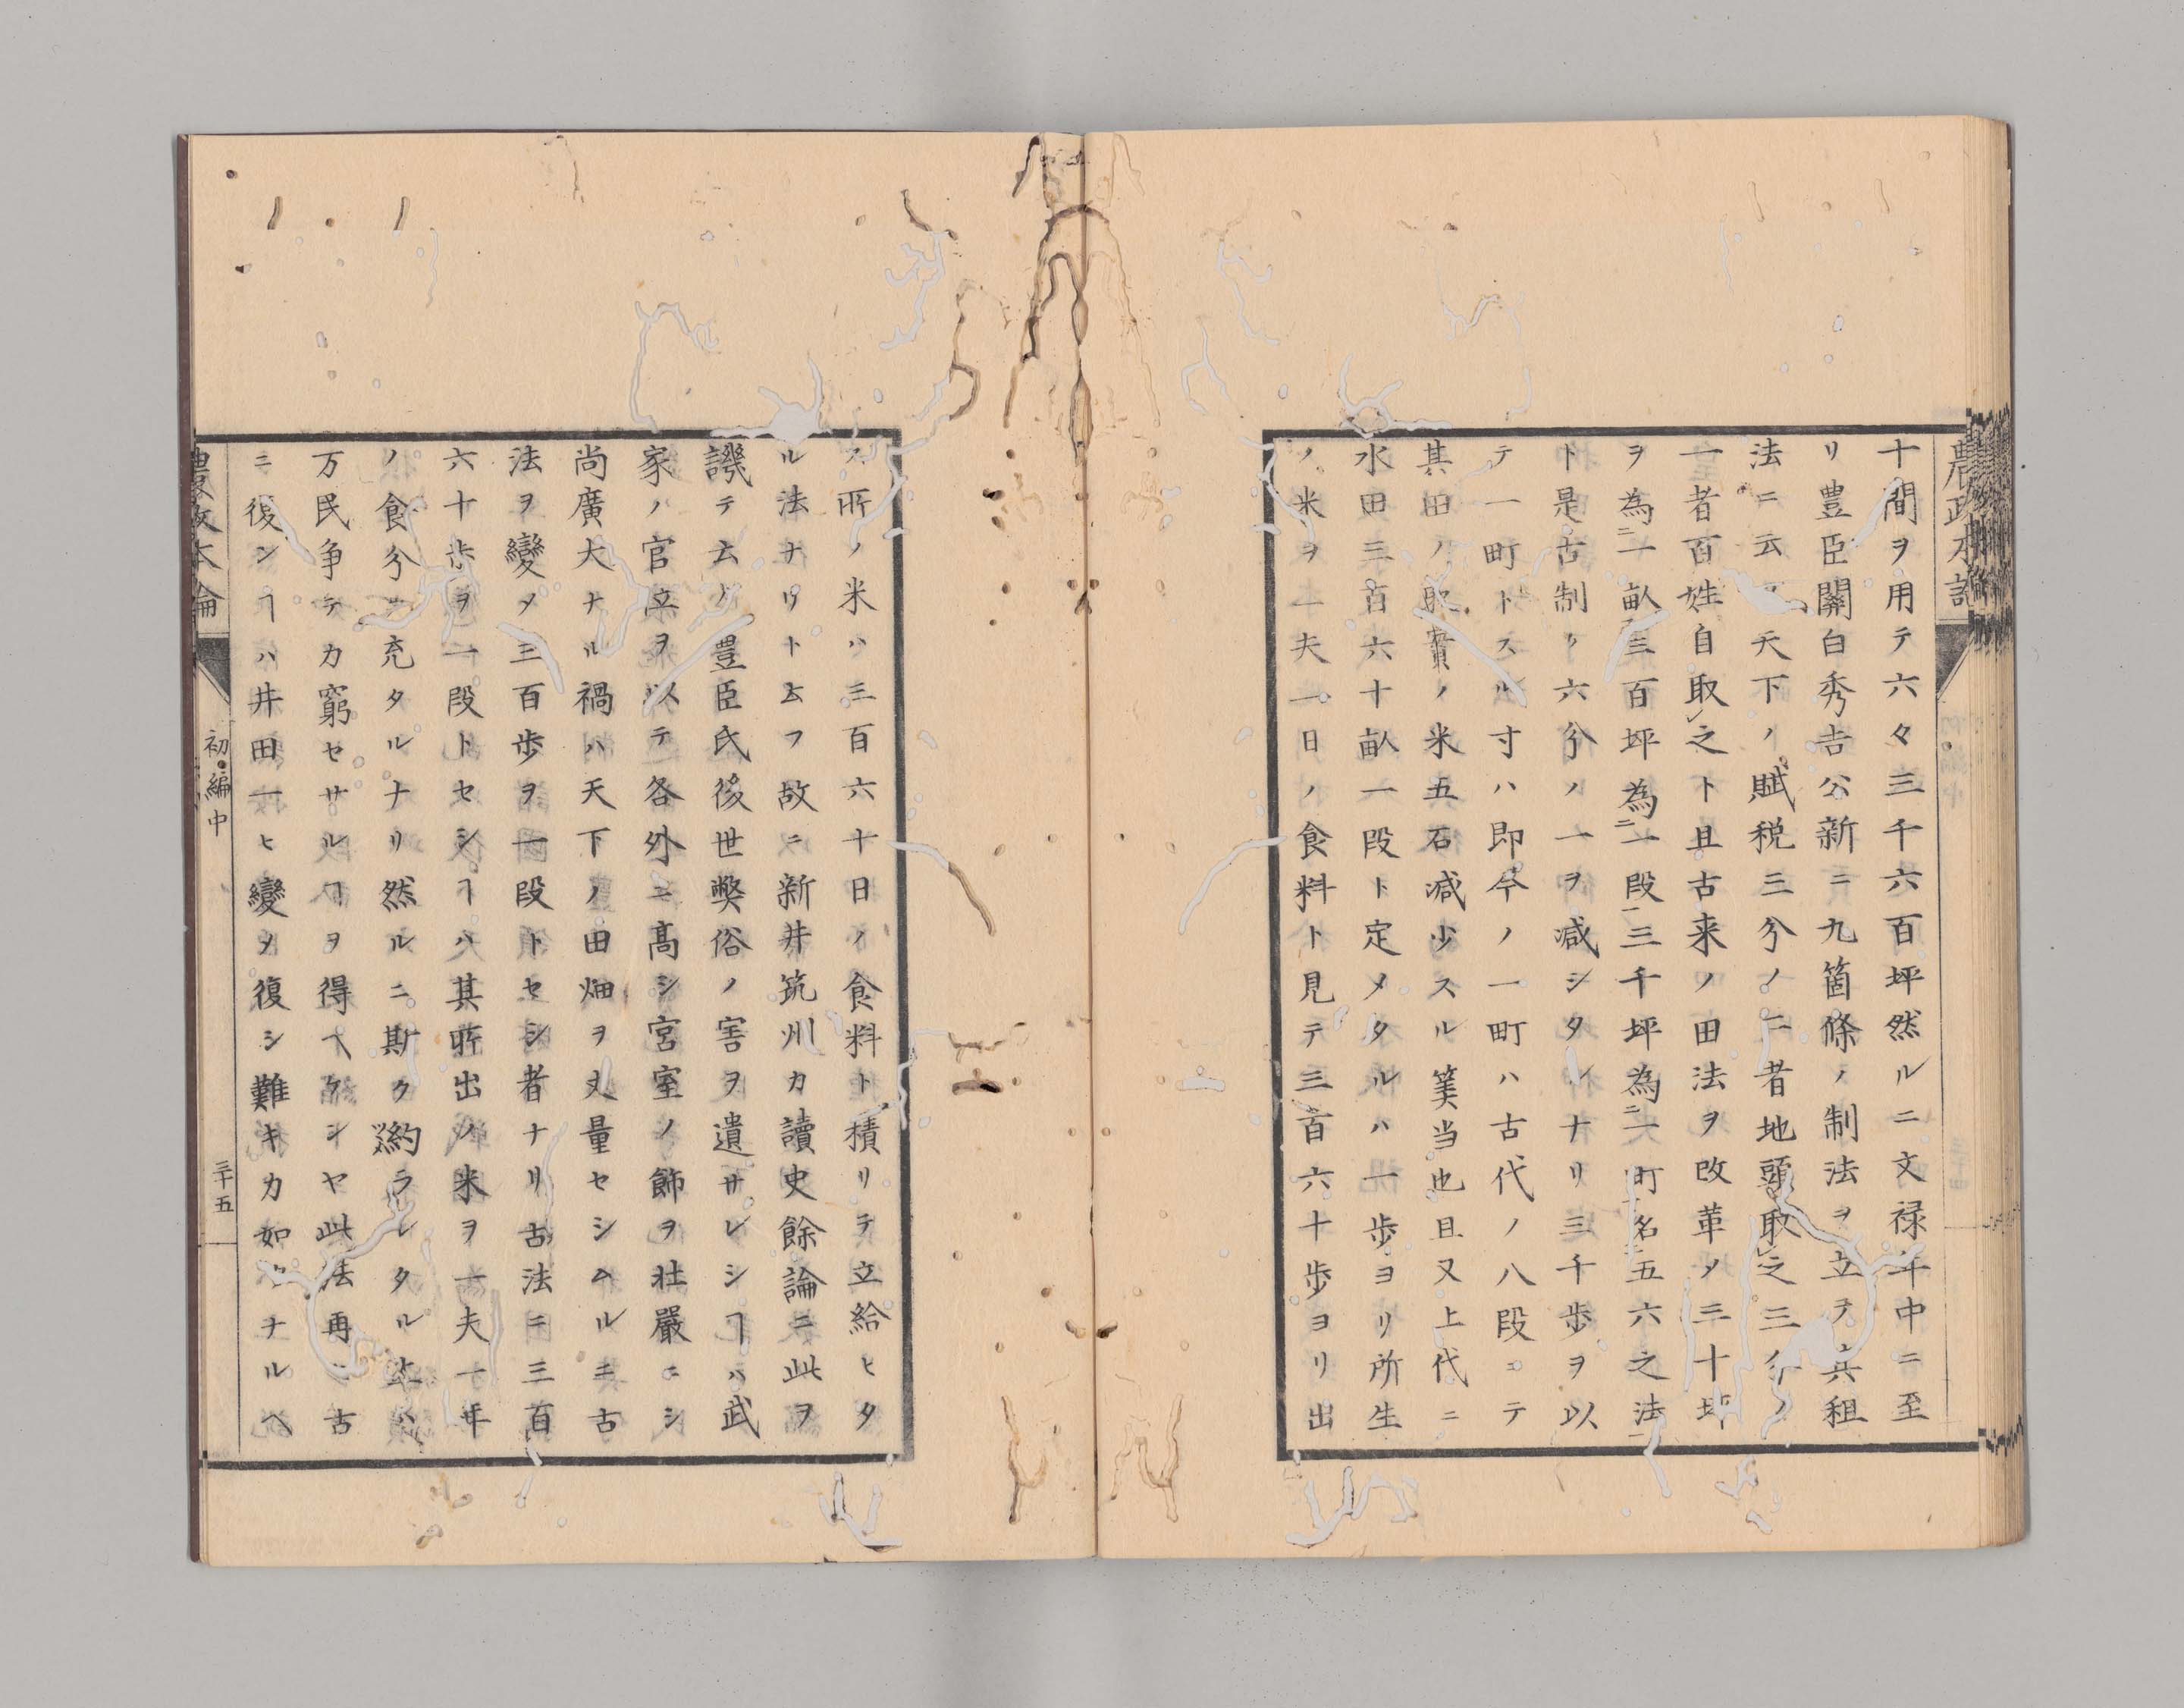 農政本論
十間ヲ用テ六々三千六百坪然ルニ文禄年中ニ至
リ豊臣關白秀吉公新ニ九箇條ノ制法ヲ立テ其租
法ニ云ク天下ノ賦税三分ノ二者地頭取之三分ノ
一者百姓自取之ト且古来ノ田法ヲ改革メ三十坪
ヲ為二一畝三百坪為二一段一三千坪為二一町一名五六之法一
ト是古制ノ六分ノ一ヲ減シタルナリ三千歩ヲ以
テ一町トスル寸ハ即今ノ一町ハ古代ノ八段ニテ
其田ノ取實ノ米五石減少スル筭当也且又上代ニ
水田三百六十畝一段ト定メタルハ一歩ヨリ所生
ノ米ヲ一夫一日ノ食料ト見テ三百六十歩ヨリ出
ス所ノ米ハ三百六十日ノ食料ト積リテ立給ヒタ
ル法ナリト云フ故ニ新井筑州カ讀史餘論ニ此ヲ
譏テ云ク豊臣氏後世獘俗ノ害ヲ遺サレシヿハ武
家ノ官位ヲ以テ各外ニ髙シ宮室ノ飾ヲ壮嚴ニシ
尚廣大ナル禍ハ天下ノ田畑ヲ丈量セシムルニ古
法ヲ變メ三百歩ヲ一段トセシ者ナリ古法ニ三百
六十歩ヲ一段トセシヿハ其所出ノ米ヲ一夫一年
ノ食分ニ充タルナリ然ルニ斯ク約ラレタル上ハ
万民争テカ窮セサルヿヲ得ヘケンヤ此法再ニ古
ニ復シヿハ井田一ヒ變メ復シ難キカ如クナルヘ
農政本論
初編中
三十五